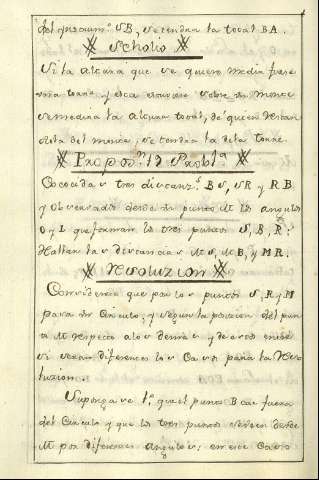 del instrum.º SB, se tendra la total BA.
Scholio
Si la altura que se quiere medir fuese
una torre, y esta estuviere sobre un monte
se medira la altura total, de quien restan
dola del monte, se tendra la dela torre.
Propos.n 12 Probl.ª
Conocidas tres distanz.s BS, SR y RB
y observados desde un punto M los angulos
O y L que forman los tres puntos S, B, R:
Hallar las distancias MS, MB, y MR.
Resoluzion
Considerese que por los puntos S, R y M
pasa un Circulo; y segun la posicion del pun
to M respecto alos demas, y de otros
si seran diferentes los Casos para la Reso
luzion.
Supongase 1.º que el punto B cae fuera
del Circulo y que los tres puntos se ven desde
M por diferentes angulos; en este Caso